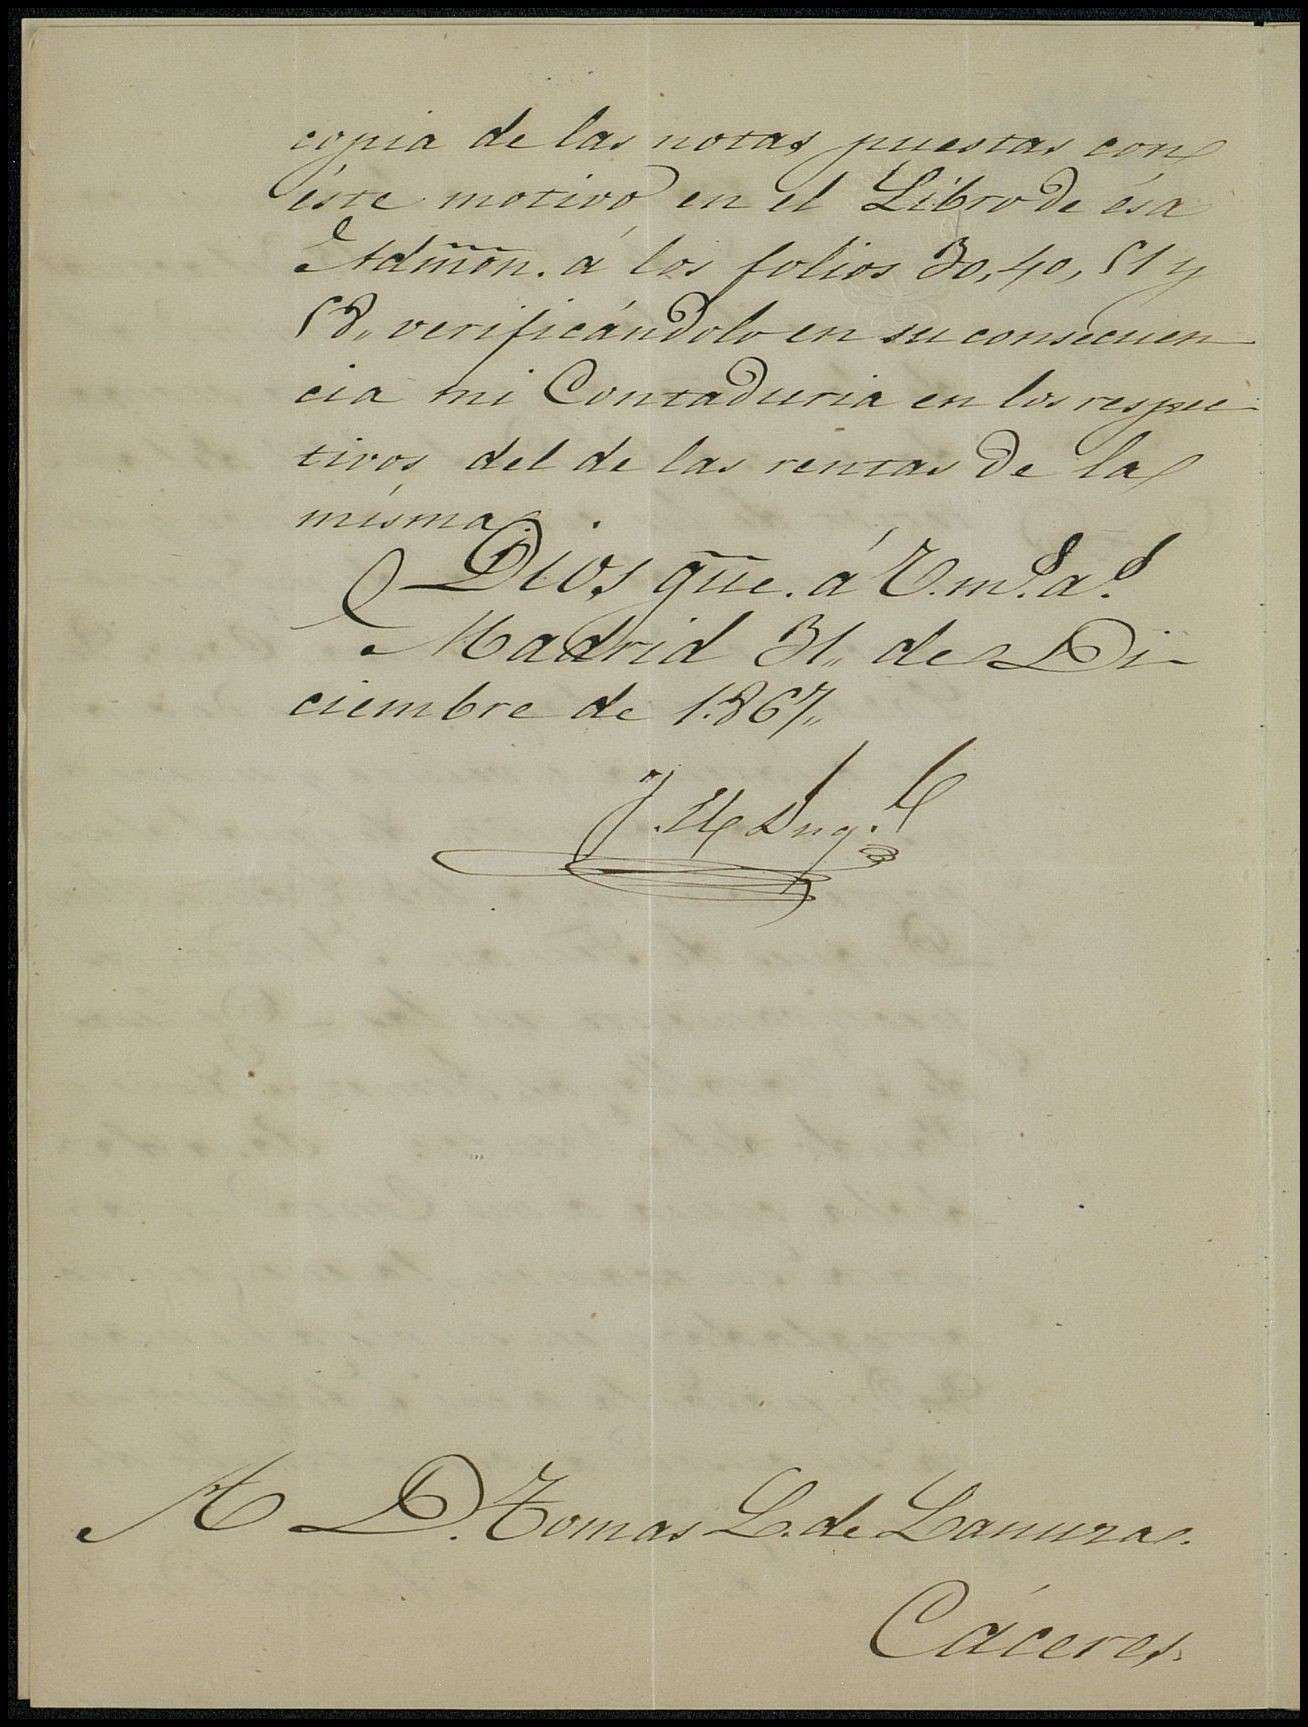 copia de las notas puestas con
éste motivo en el Libro de ésa
Admon. á los folios 30, 40, 51 y
58,, verificándolo en su consecuen
cia mi Contaduria en los respec
tivos del de las rentas de la
misma.
Dios gue. á V. ms. as.
Madrid 31,, de Di-
ciembre de 1.867,,
A D. Tomas L. de Lanuza.
Cáceres.